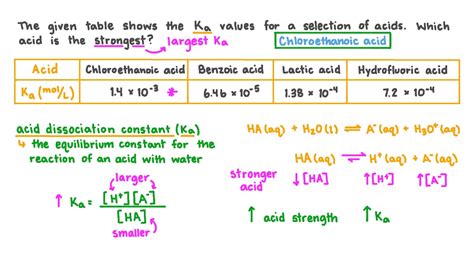 The given table shows the Ka values for a selection of acids. Which
acid is the strongest? largest Ka Chloroethanoic acid
Acid Chloroethanoic acid Benzoic acid Lactic acid Hydrofluoric acid
Ka (mol/L) 1.4 × 10⁻³ * 6.46 × 10⁻⁵ 1.38 × 10⁻⁴ 7.2 × 10⁻⁴
acid dissociation constant (Ka)
↳ the equilibrium constant for the
reaction of an acid with water
HA(aq) + H₂O(l) ⇌ A⁻(aq) + H₃O⁺(aq)
HA(aq) ⇌ H⁺(aq) + A⁻(aq)
stronger
acid ↓[HA] ↑[H⁺] ↑[A⁻]
larger
↑ Ka = [H⁺][A⁻]
[HA]
smaller
↑ acid strength ↑Ka